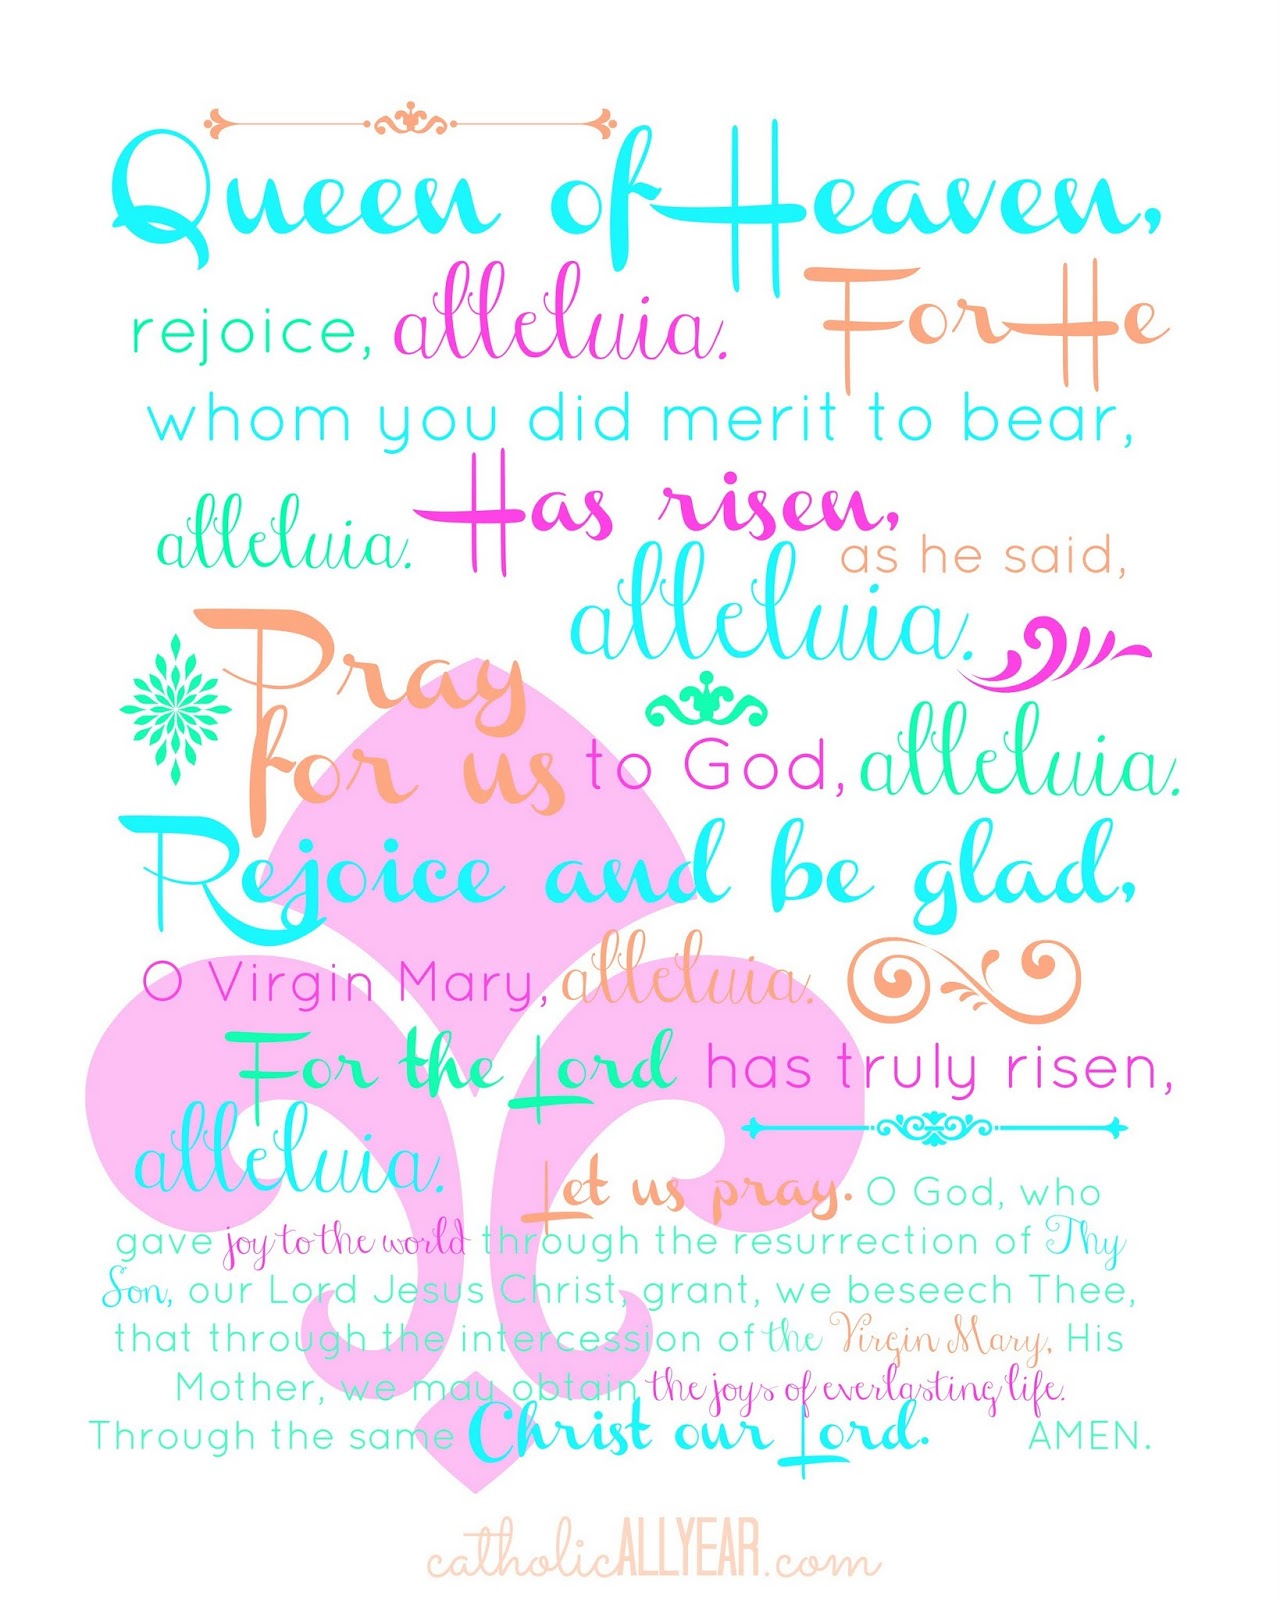 Queen of Heaven,
rejoice, alleluia. For He
whom you did merit to bear,
alleluia. Has risen,
as he said,
alleluia.
Pray
for us to God, alleluia.
Rejoice and be glad,
O Virgin Mary, alleluia.
For the Lord has truly risen,
alleluia.
Let us pray. O God, who
gave joy to the world through the resurrection of Thy
Son, our Lord Jesus Christ, grant, we beseech Thee,
that through the intercession of the Virgin Mary, His
Mother, we may obtain the joys of everlasting life.
Through the same Christ our Lord. AMEN.
catholicALLYEAR.com